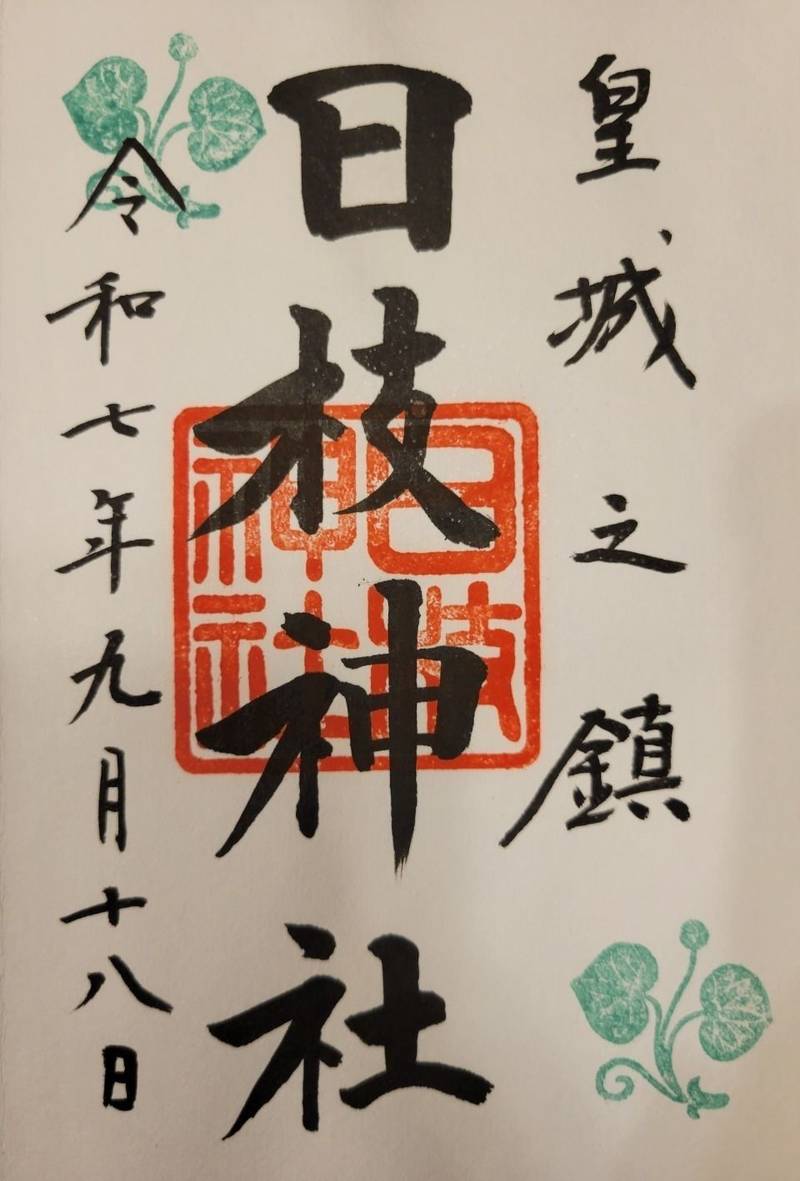 皇城之鎮
日枝神社
日枝神社
令和七年九月十八日